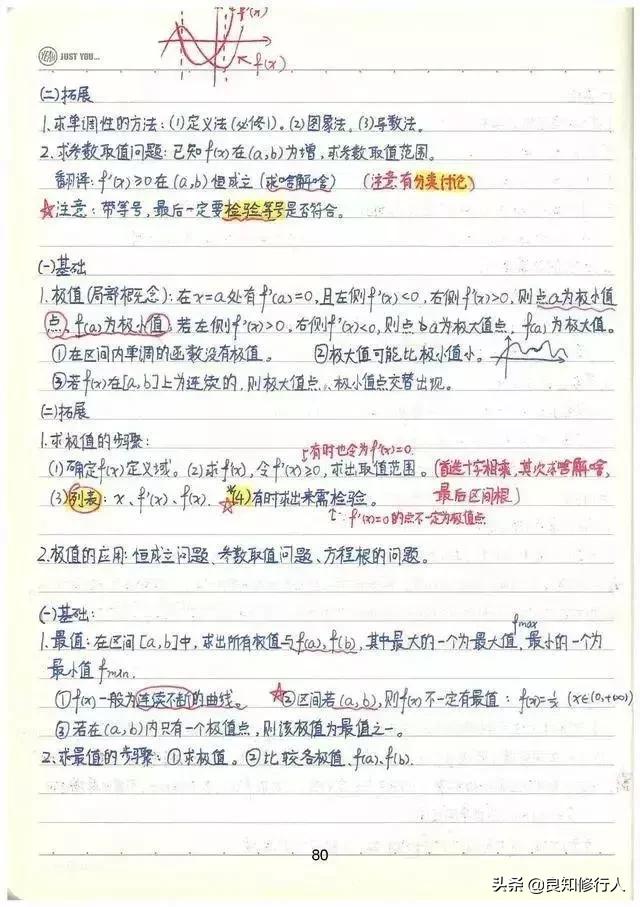 f'(x)
f(x)
YEAH JUST YOU...
(二)拓展
1.求单调性的方法：(1)定义法(必修1)。(2)图象法。(3)导数法。
2.求参数取值问题：已知f(x)在(a,b)为增，求参数取值范围。
翻译：f'(x)≥0在(a,b)恒成立(求啥解啥) (注意有分类讨论)
☆注意：带等号，最后一定要检验等号是否符合。
(一)基础
1.极值(局部概念)：在x=a处有f'(a)=0,且左侧f'(x)<0,右侧f'(x)>0,则点a为极小值
点，f(a)为极小值；若左侧f'(x)>0,右侧f'(x)<0,则点a为极大值点，f(a)为极大值。
①在区间内单调的函数没有极值。 ②极大值可能比极小值小。
③若f(x)在[a,b]上为连续的，则极大值点、极小值点交替出现。
(二)拓展
1.求极值的步骤：
有时也令为f'(x)=0.
(1)确定f(x)定义域。(2)求f'(x),令f'(x)≥0,求出取值范围。(首选十字相乘，其次求啥解啥，
(3)列表：x、f'(x)、f(x). ☆(4)有时求出来需检验。 最后区间根)
f'(x)=0的点不一定为极值点
2.极值的应用：恒成立问题、参数取值问题、方程根的问题。
(一)基础：
1.最值：在区间[a,b]中，求出所有极值与f(a),f(b),其中最大的一个为最大值fmax,最小的一个为
最小值fmin.
①f(x)一般为连续不断的曲线。 ☆②区间若(a,b),则f(x)不一定有最值：f(x)=1/x (x∈(0,+∞))
③若在(a,b)内只有一个极值点，则该极值为最值之一。
2.求最值的步骤：①求极值。②比较各极值、f(a)、f(b).
80
头条@良知修行人